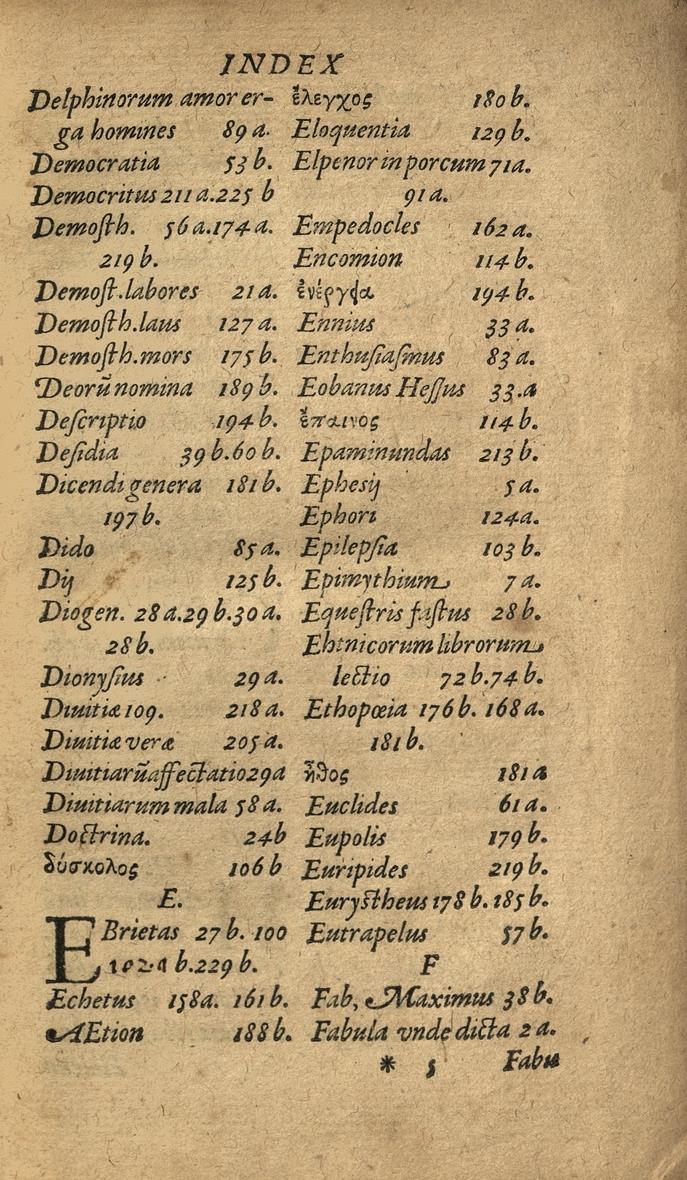 INDEX
Delphinorum amor er-
ga homines 89 a.
Democratia 53 b.
Democritus 211 a. 225 b
Demosth. 56 a. 174 a.
219 b.
Demost. labores 21 a.
Demosth. laus 127 a.
Demosth. mors 175 b.
Deorũ nomina 189 b.
Descriptio 194 b.
Desidia 39 b. 60 b.
Dicendi genera 181 b.
197 b.
Dido 85 a.
Dij 125 b.
Diogen. 28 a. 29 b. 30 a.
28 b.
Dionysius 29 a.
Diuitiæ 109. 218 a.
Diuitiæ veræ 205 a.
Diuitiarũ affectatio 29 a
Diuitiarum mala 58 a.
Doctrina. 24 b
δύσκολος 106 b
E.
EBrietas 27 b. 100
b. 229 b.
Echetus 158 a. 161 b.
AEtion 188 b.
ἔλεγχος 180 b.
Eloquentia 129 b.
Elpenor in porcum 71 a.
91 a.
Empedocles 162 a.
Encomion 114 b.
ἐνέργεια 194 b.
Ennius 33 a.
Enthusiasmus 83 a.
Eobanus Hessus 33. a
ἔπαινος 114 b.
Epaminundas 213 b.
Ephesij 5 a.
Ephori 124 a.
Epilepsia 103 b.
Epimythium 7 a.
Equestris fastus 28 b.
Ehtnicorum librorum
lectio 72 b. 74 b.
Ethopœia 176 b. 168 a.
181 b.
ἦθος 181 a
Euclides 61 a.
Eupolis 179 b.
Euripides 219 b.
Eurystheus 178 b. 185 b.
Eutrapelus 57 b.
F
Fab, Maximus 38 b.
Fabula vnde dicta 2 a.
* 5 Fabu